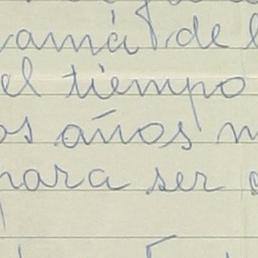 mamá de l
el tiempo
os años m
para ser